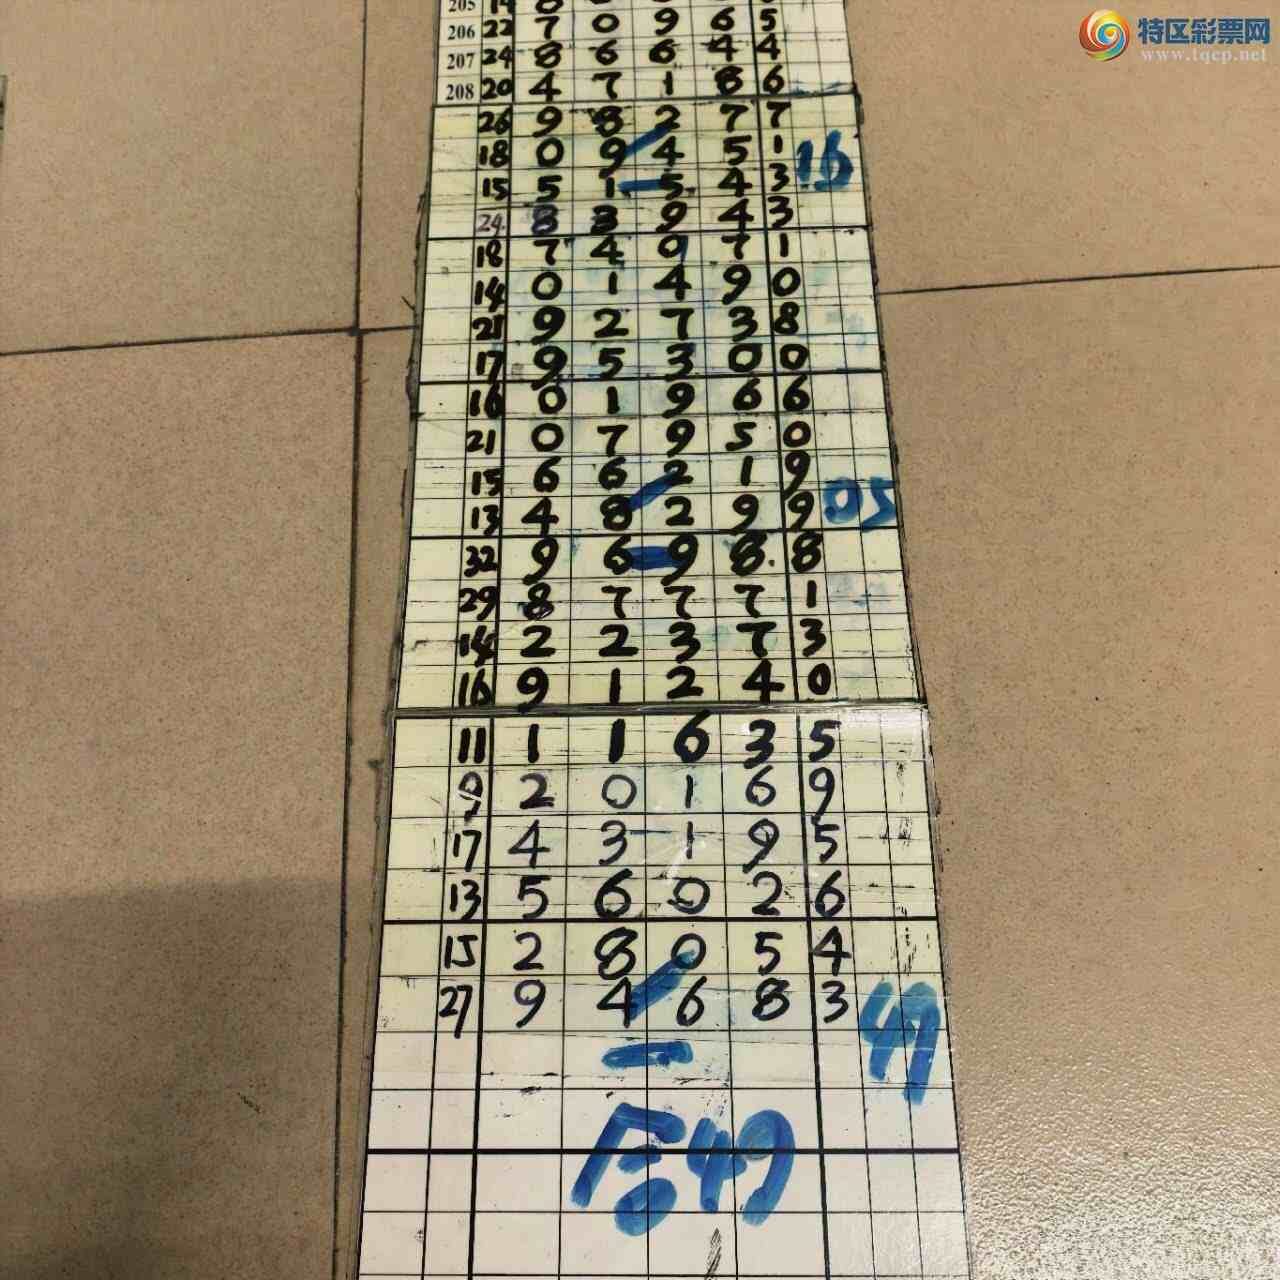 特区彩票网
www.tqcp.net
205 14
206 22 7 0 9 6 5
207 24 8 6 6 4 4
208 20 4 7 1 8 6
26 9 8 2 7 7
18 0 9 4 5 1 16
15 5 1 5 4 3
24 8 3 9 4 3
18 7 4 0 7 1
14 0 1 4 9 0
21 9 2 7 3 8
17 9 5 3 0 0
16 0 1 9 6 6
21 0 7 9 5 0
15 6 6 2 1 9
13 4 8 2 9 9 05
32 9 6 9 8 8
29 8 7 7 7 1
14 2 2 3 7 3
16 9 1 2 4 0
11 1 1 6 3 5
9 2 0 1 6 9
17 4 3 1 9 5
13 5 6 0 2 6
15 2 8 0 5 4
27 9 4 6 8 3
49
合49